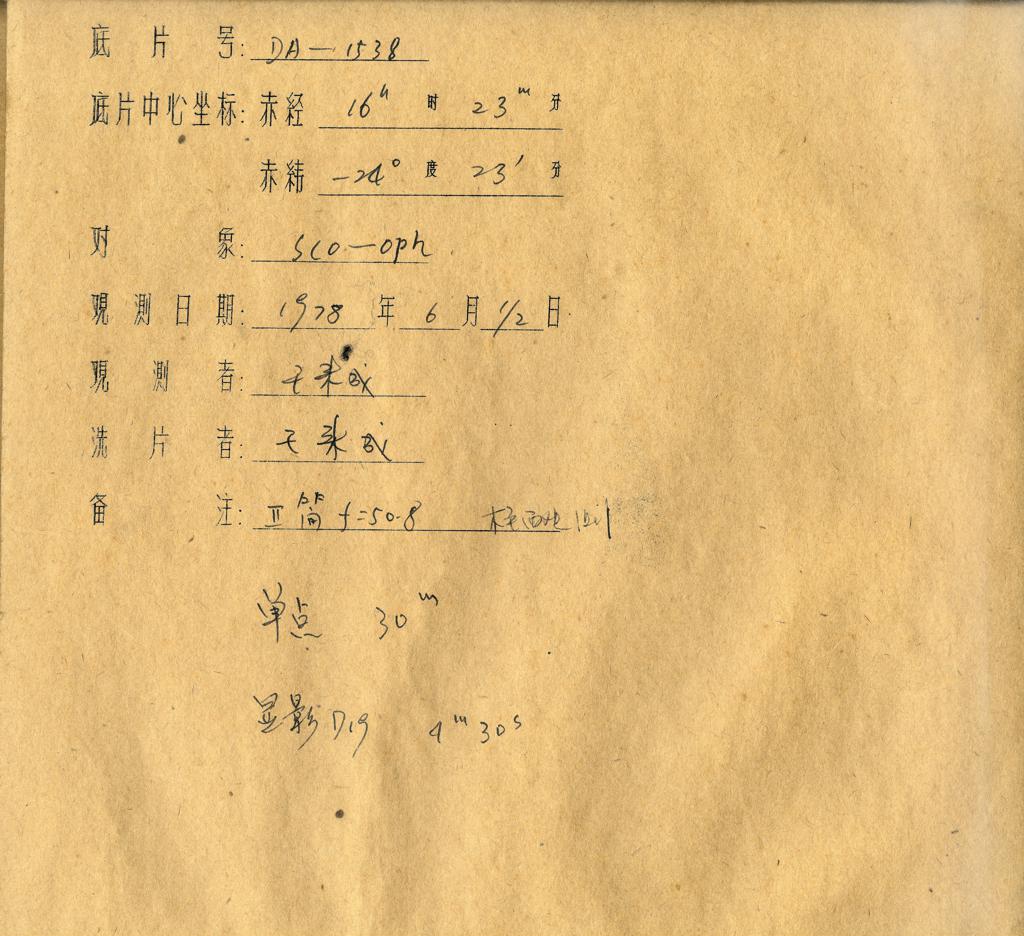 底片号: DA—1538
底片中心坐标: 赤经 16h 时 23m 分
赤纬 -24° 度 23′ 分
对象: Sco—Oph
观测日期: 1978 年 6 月 1/2 日
观测者: 王来成
洗片者: 王来成
备注: II筒 f=50.8
单点 30m
显影 D19 4m 30s